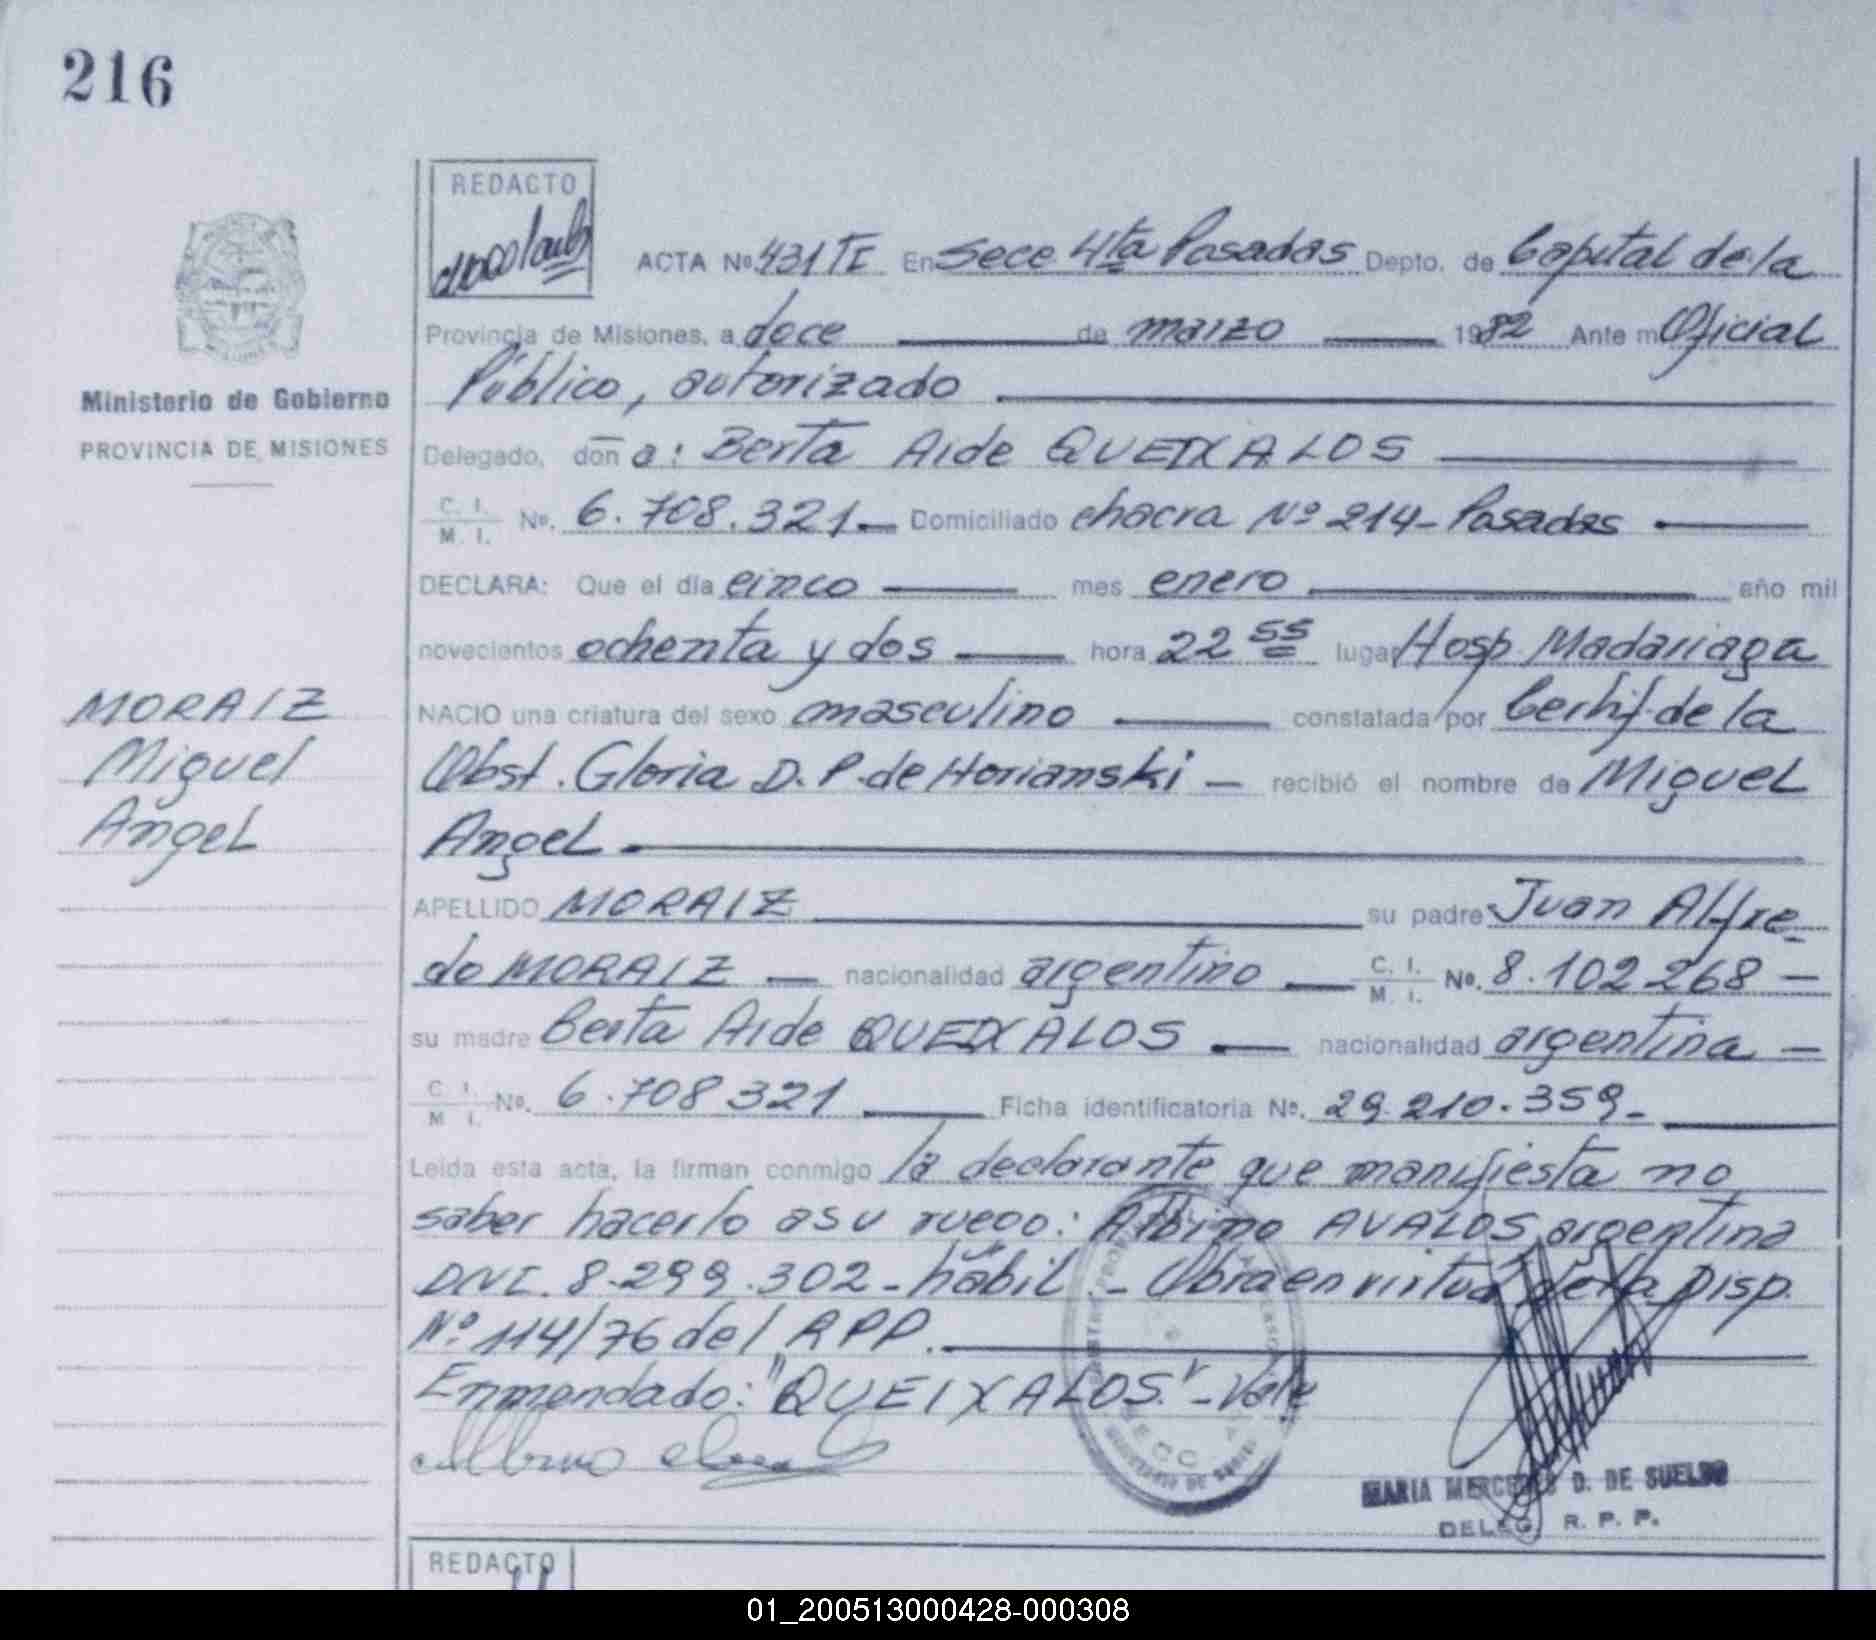 216
REDACTO
ACTA Nº 431 TI En Secc 4ta Posadas Depto. de Capital de la
Provincia de Misiones, a doce de marzo 1982 Ante mi Oficial
Público, autorizado
Ministerio de Gobierno
PROVINCIA DE MISIONES
Delegado, don a: Berta Aide QUEIXALOS
C. I. M. I. No. 6.708.321 Domiciliado chacra Nº 214- Posadas
DECLARA: Que el día cinco mes enero año mil
novecientos ochenta y dos hora 22 55 lugar Hosp. Madariaga
NACIO una criatura del sexo masculino constatada por Certif. de la
Obst. Gloria D. P. de Horianski - recibió el nombre de Miguel
Angel
MORAIZ
Miguel
Angel
APELLIDO MORAIZ su padre Juan Alfre-
do MORAIZ nacionalidad argentino C. I. M. I. No. 8.102.268 -
su madre Berta Aide QUEIXALOS nacionalidad argentina -
C. I. M. I. No. 6.708 321 Ficha identificatoria No. 29.210.359.-
Leída esta acta, la firman conmigo la declarante que manifiesta no
saber hacerlo a su ruego: Albino AVALOS argentino
DNI. 8.299.302 - hábil. - Obra en virtud de la Disp.
Nº 114/76 del RPP.
Enmendado: "QUEIXALOS" - Vale
MARIA MERCEDES D. DE SUELDO
DELEG. R. P. P.
REDACTO
01_200513000428-000308